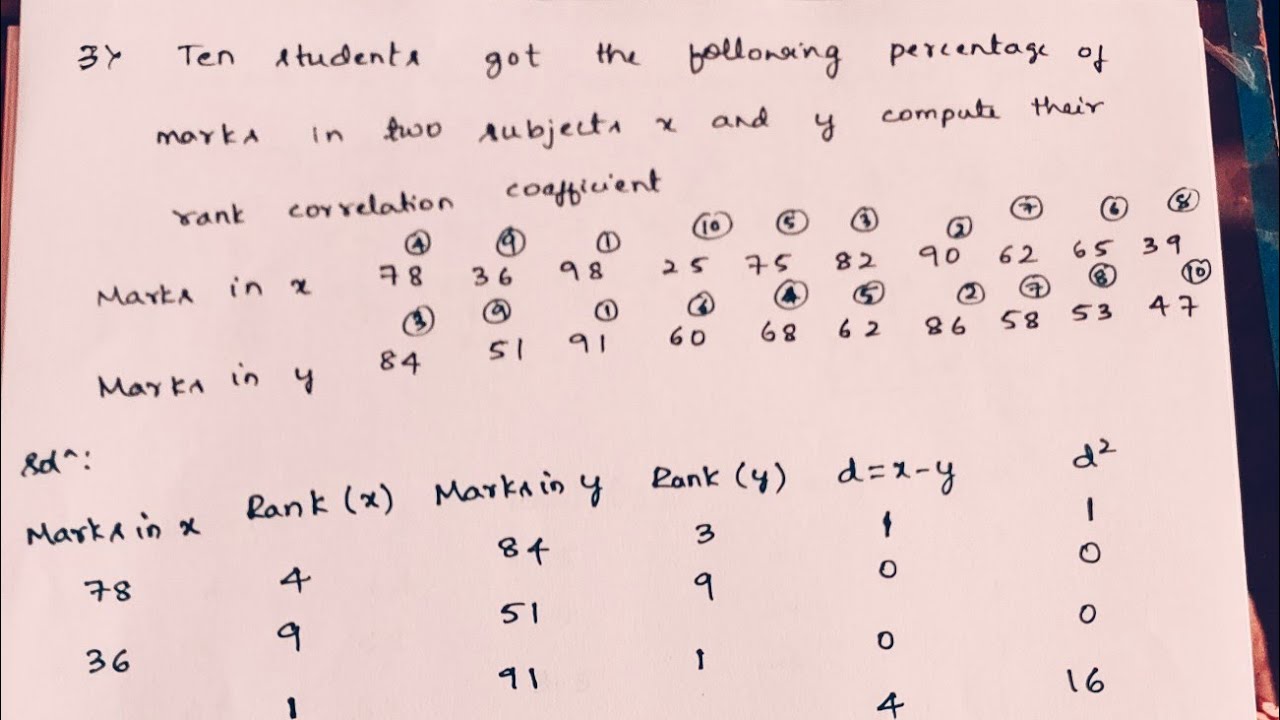 3) Ten students got the following percentage of
marks in two subjects x and y compute their
rank correlation coafficient
4 9 1 10 5 3 2 7 6 8
Marks in x 78 36 98 25 75 82 90 62 65 39
3 9 1 6 4 5 2 7 8 10
Marks in y 84 51 91 60 68 62 86 58 53 47
Sol^n:
Marks in x Rank (x) Marks in y Rank (y) d=x-y d²
78 4 84 3 1 1
36 9 51 9 0 0
1 91 1 0 0
4 16